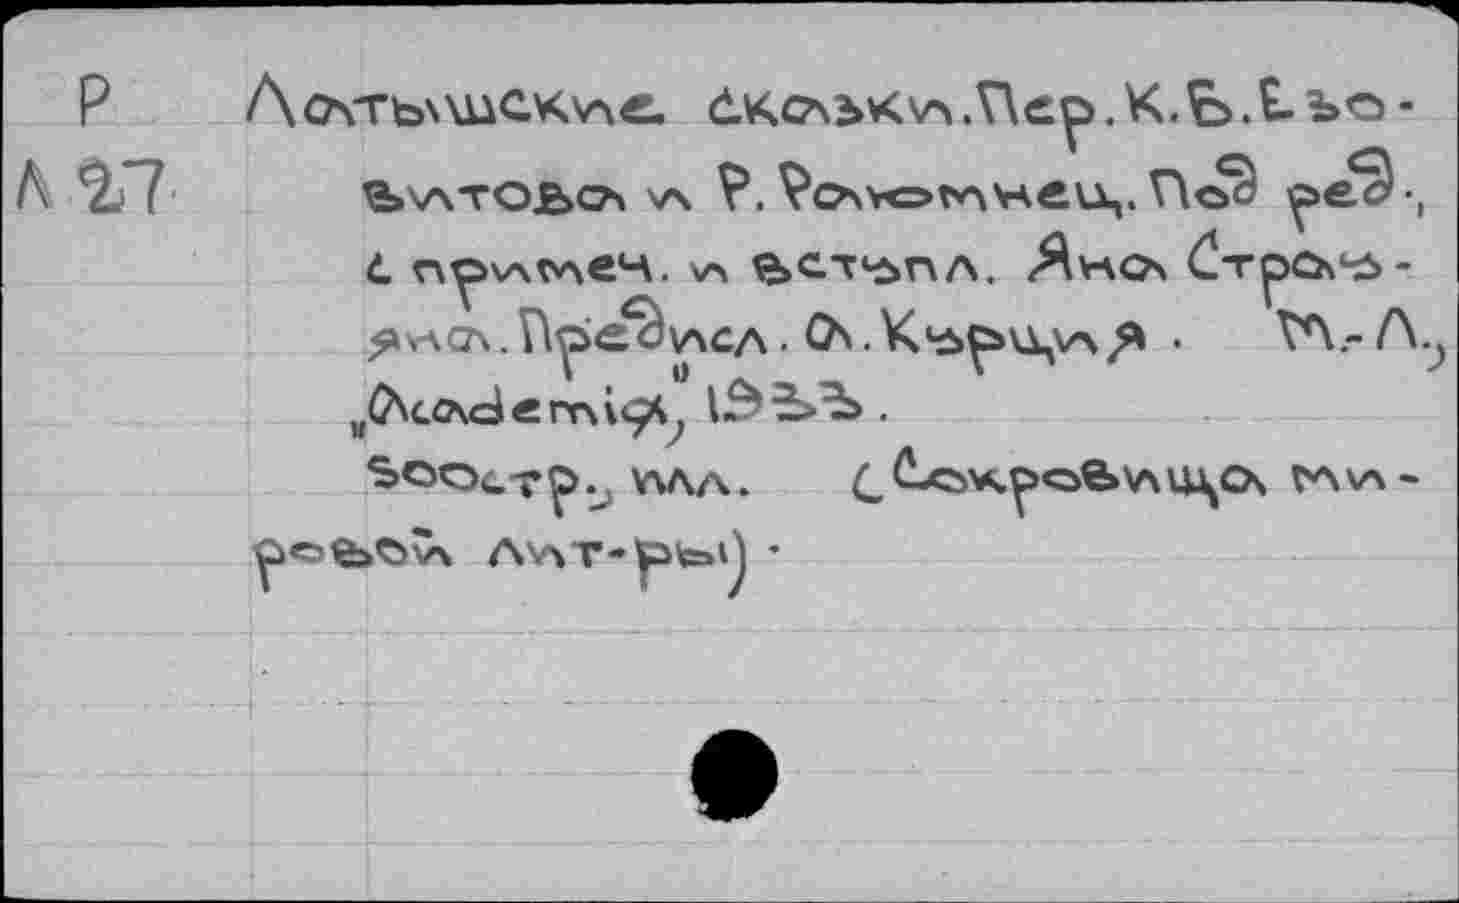 Р Латышские сказки. Пер. К.Б.Е. Зо-
Л 27 витова и Р. Рахоминец. Под ред.,
с примеч. и вступл. Яна Страу-
яна. Предисл. А. Кърция. М.-Л.,
„Academia“, 1933.
500стр., илл. (Сокровища ми-
ровой лит-ры).